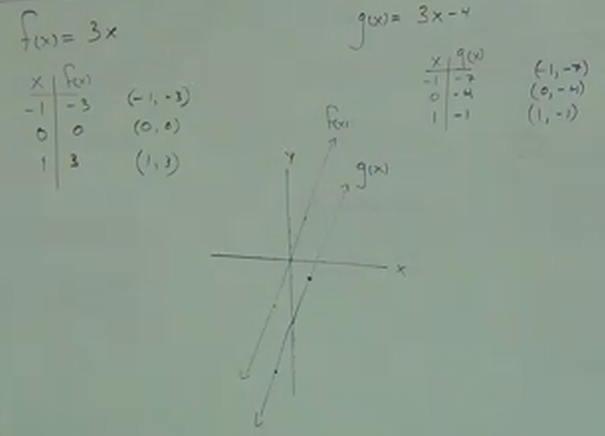 f(x) = 3x
x f(x)
-1 -3 (-1, -3)
0 0 (0, 0)
1 3 (1, 3)
g(x) = 3x-4
x g(x)
-1 -7 (-1, -7)
0 -4 (0, -4)
1 -1 (1, -1)
f(x)
Y
g(x)
x